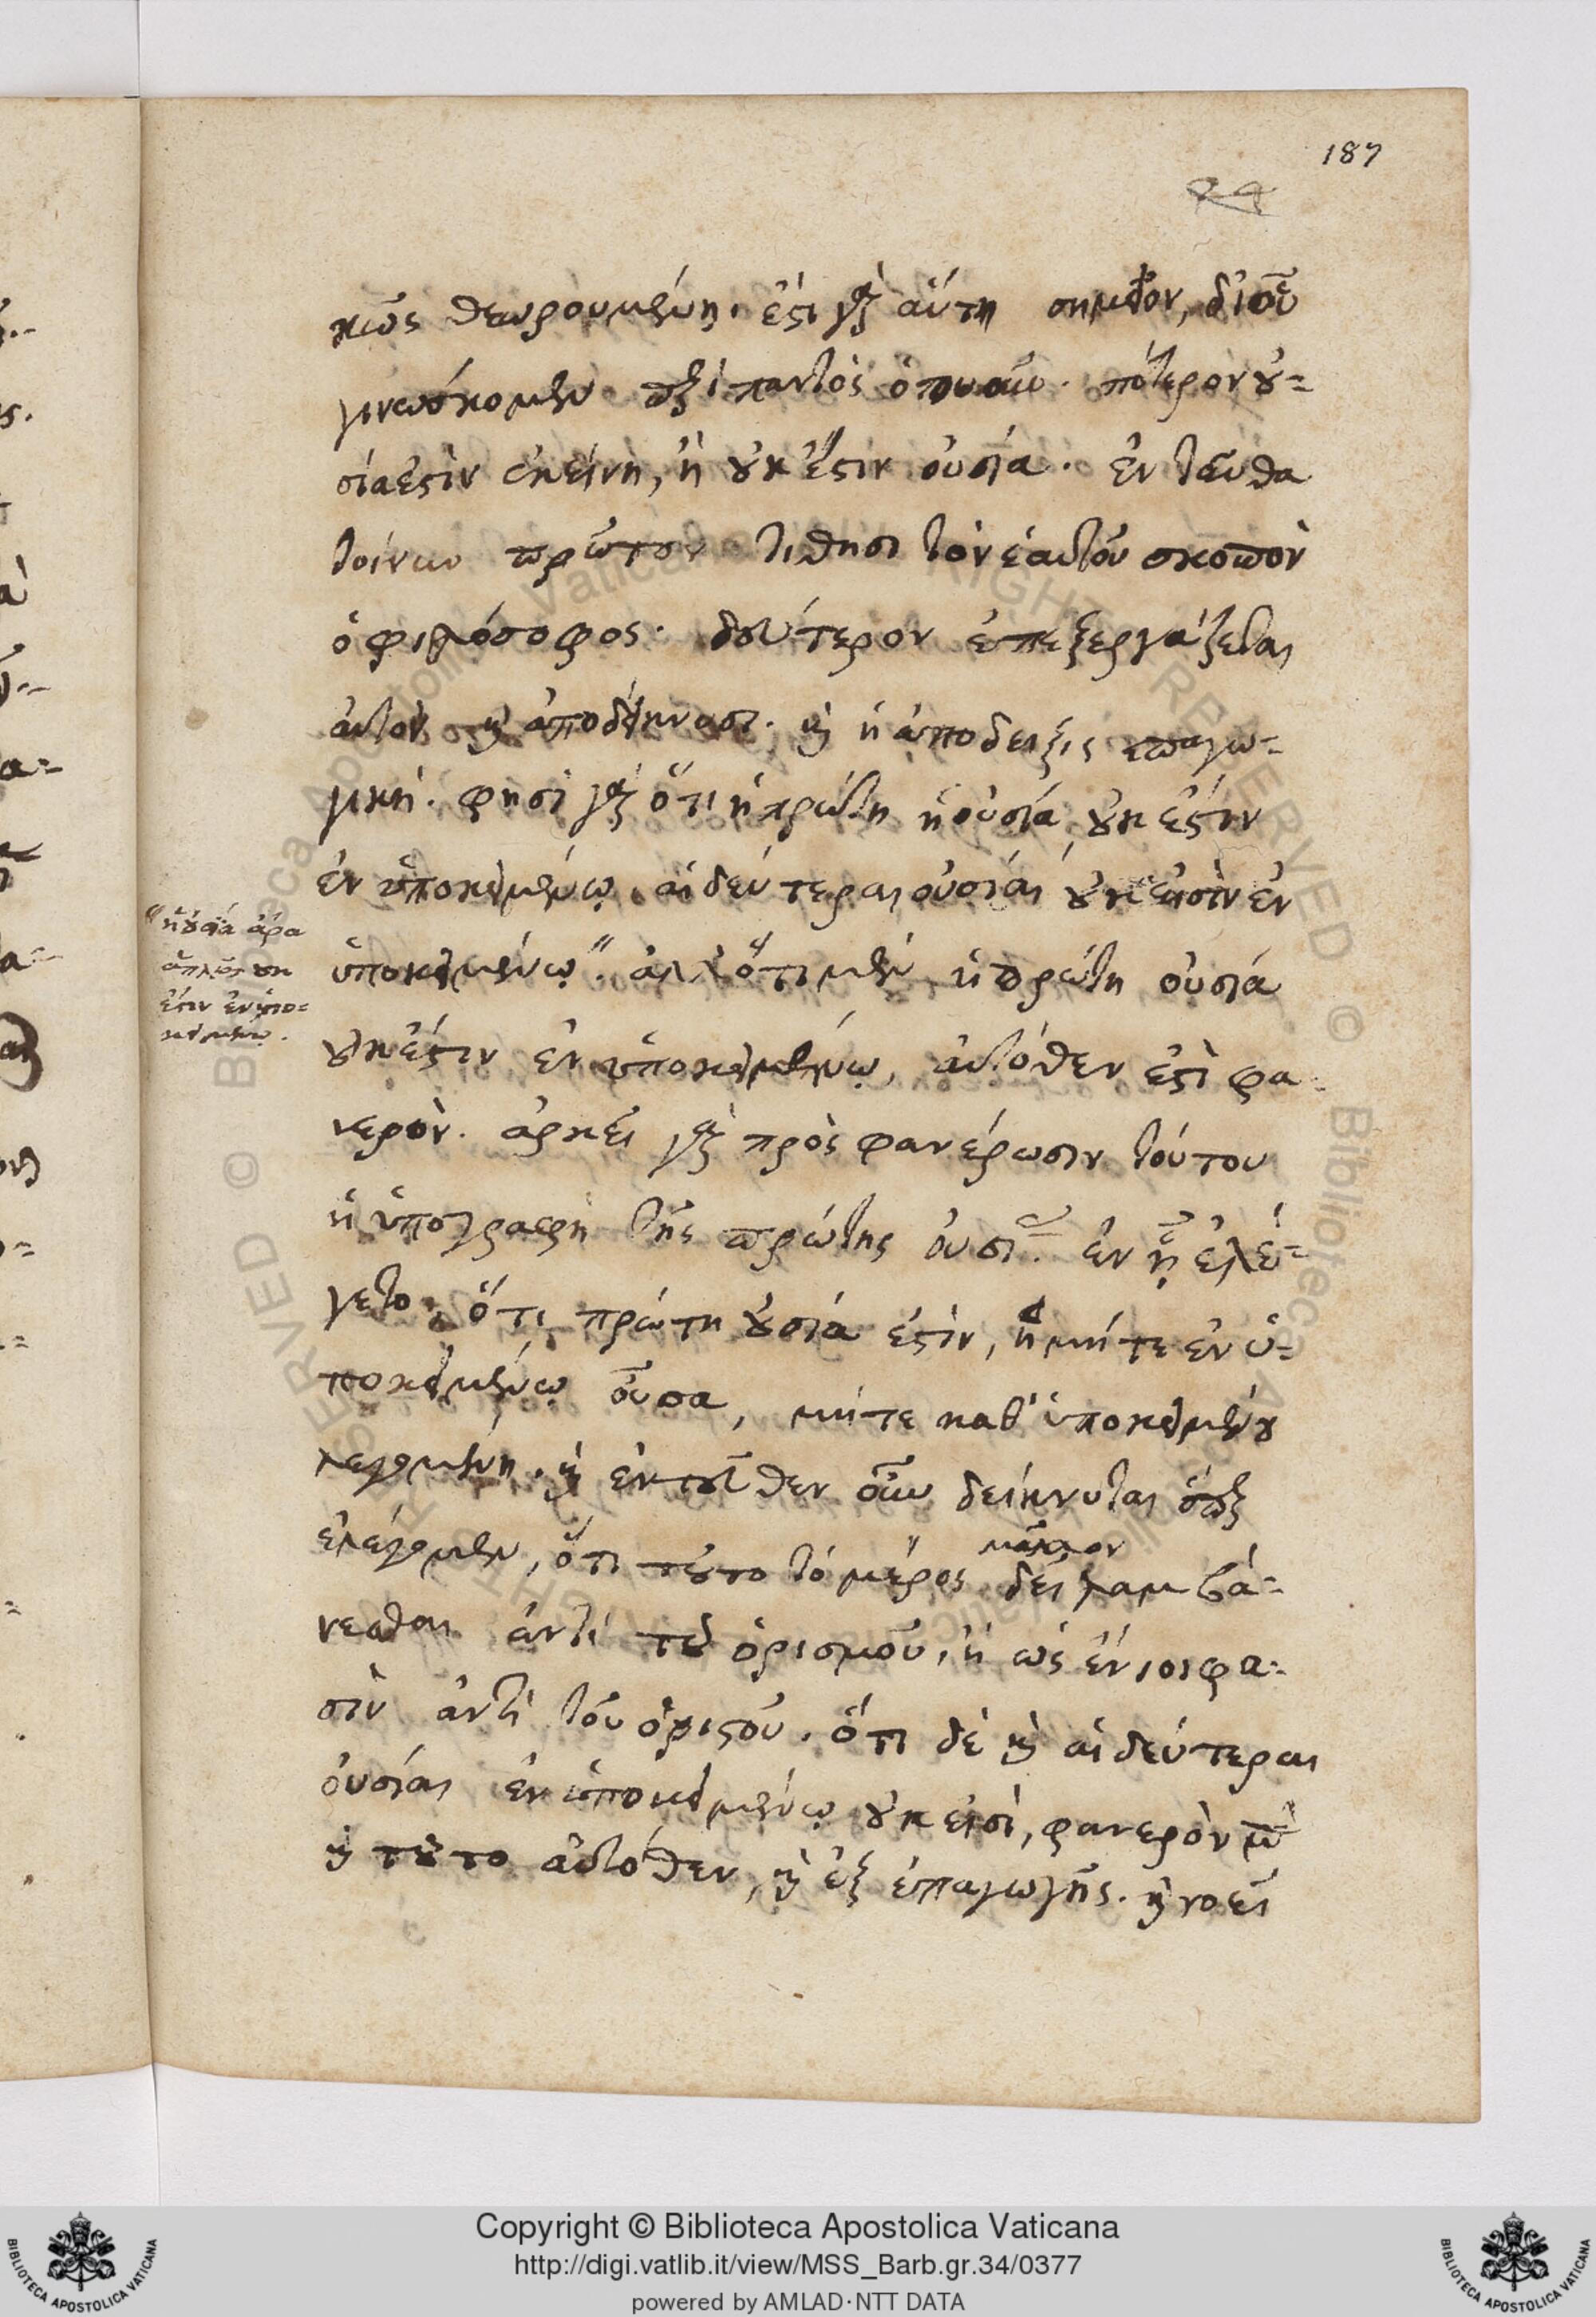 187
24
κῶς θεωρουμένη. ἔστι γὰρ αὕτη σημεῖον, δι' οὗ
γινώσκομεν περὶ παντὸς ὁτουοῦν. πότερον οὐ-
σία ἐστὶν ἐκείνη, ἢ οὐκ ἔστιν οὐσία. ἐνταῦθα
τοίνυν πρῶτον τίθησι τὸν ἑαυτοῦ σκοπὸν
ὁ φιλόσοφος. δεύτερον ἐπεξεργάζεται
αὐτὸν καὶ ἀποδείκνυσι. καὶ ἡ ἀπόδειξις ἐπαγω-
γική. φησὶ γὰρ ὅτι ἡ πρώτη ἡ οὐσία οὐκ ἔστιν
ἐν ὑποκειμένῳ. αἱ δεύτεραι οὐσίαι οὐκ εἰσὶν ἐν
ὑποκειμένῳ. ἀλλ' ὅτι μὲν ἡ πρώτη οὐσία
οὐκ ἔστιν ἐν ὑποκειμένῳ, αὐτόθεν ἐστὶ φα-
νερόν. ἀρκεῖ γὰρ πρὸς φανέρωσιν τούτου
ἡ ὑπογραφὴ τῆς πρώτης οὐσίας. ἐν ᾗ ἐλέ-
γετο, ὅτι πρώτη οὐσία ἐστὶν, ἡ μήτε ἐν ὑ-
ποκειμένῳ οὖσα, μήτε καθ' ὑποκειμένου
λεγομένη. καὶ ἐντεῦθεν οὖν δείκνυται ὅπερ
ἐλέγομεν, ὅτι τοῦτο τὸ μέρος μᾶλλον δεῖ λαμβά-
νεσθαι ἀντὶ τοῦ ὁρισμοῦ, ἢ ὡς ἔνιοι φα-
σὶν ἀντὶ τοῦ ὁριστοῦ. ὅτι δὲ καὶ αἱ δεύτεραι
οὐσίαι ἐν ὑποκειμένῳ οὐκ εἰσὶ, φανερὸν μὲν
καὶ τοῦτο αὐτόθεν, καὶ ἐξ ἐπαγωγῆς. καὶ νοεῖ
ἡ οὐσία ἄρα
ἁπλῶς οὐκ
ἔστιν ἐν ὑπο-
κειμένῳ.
Copyright © Biblioteca Apostolica Vaticana
http://digi.vatlib.it/view/MSS_Barb.gr.34/0377
powered by AMLAD·NTT DATA